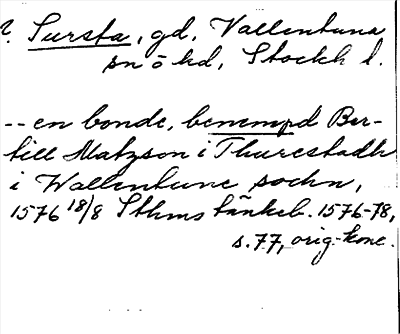 ? Sursta, gd, Vallentuna
sn o hd, Stockh l.
-- en bonde, benempd Ber-
till Matzson i Thurestadh
i Wallentune sochn,
1576 18/8 Sthms tänkeb. 1576-78,
s. 77, orig-konc.